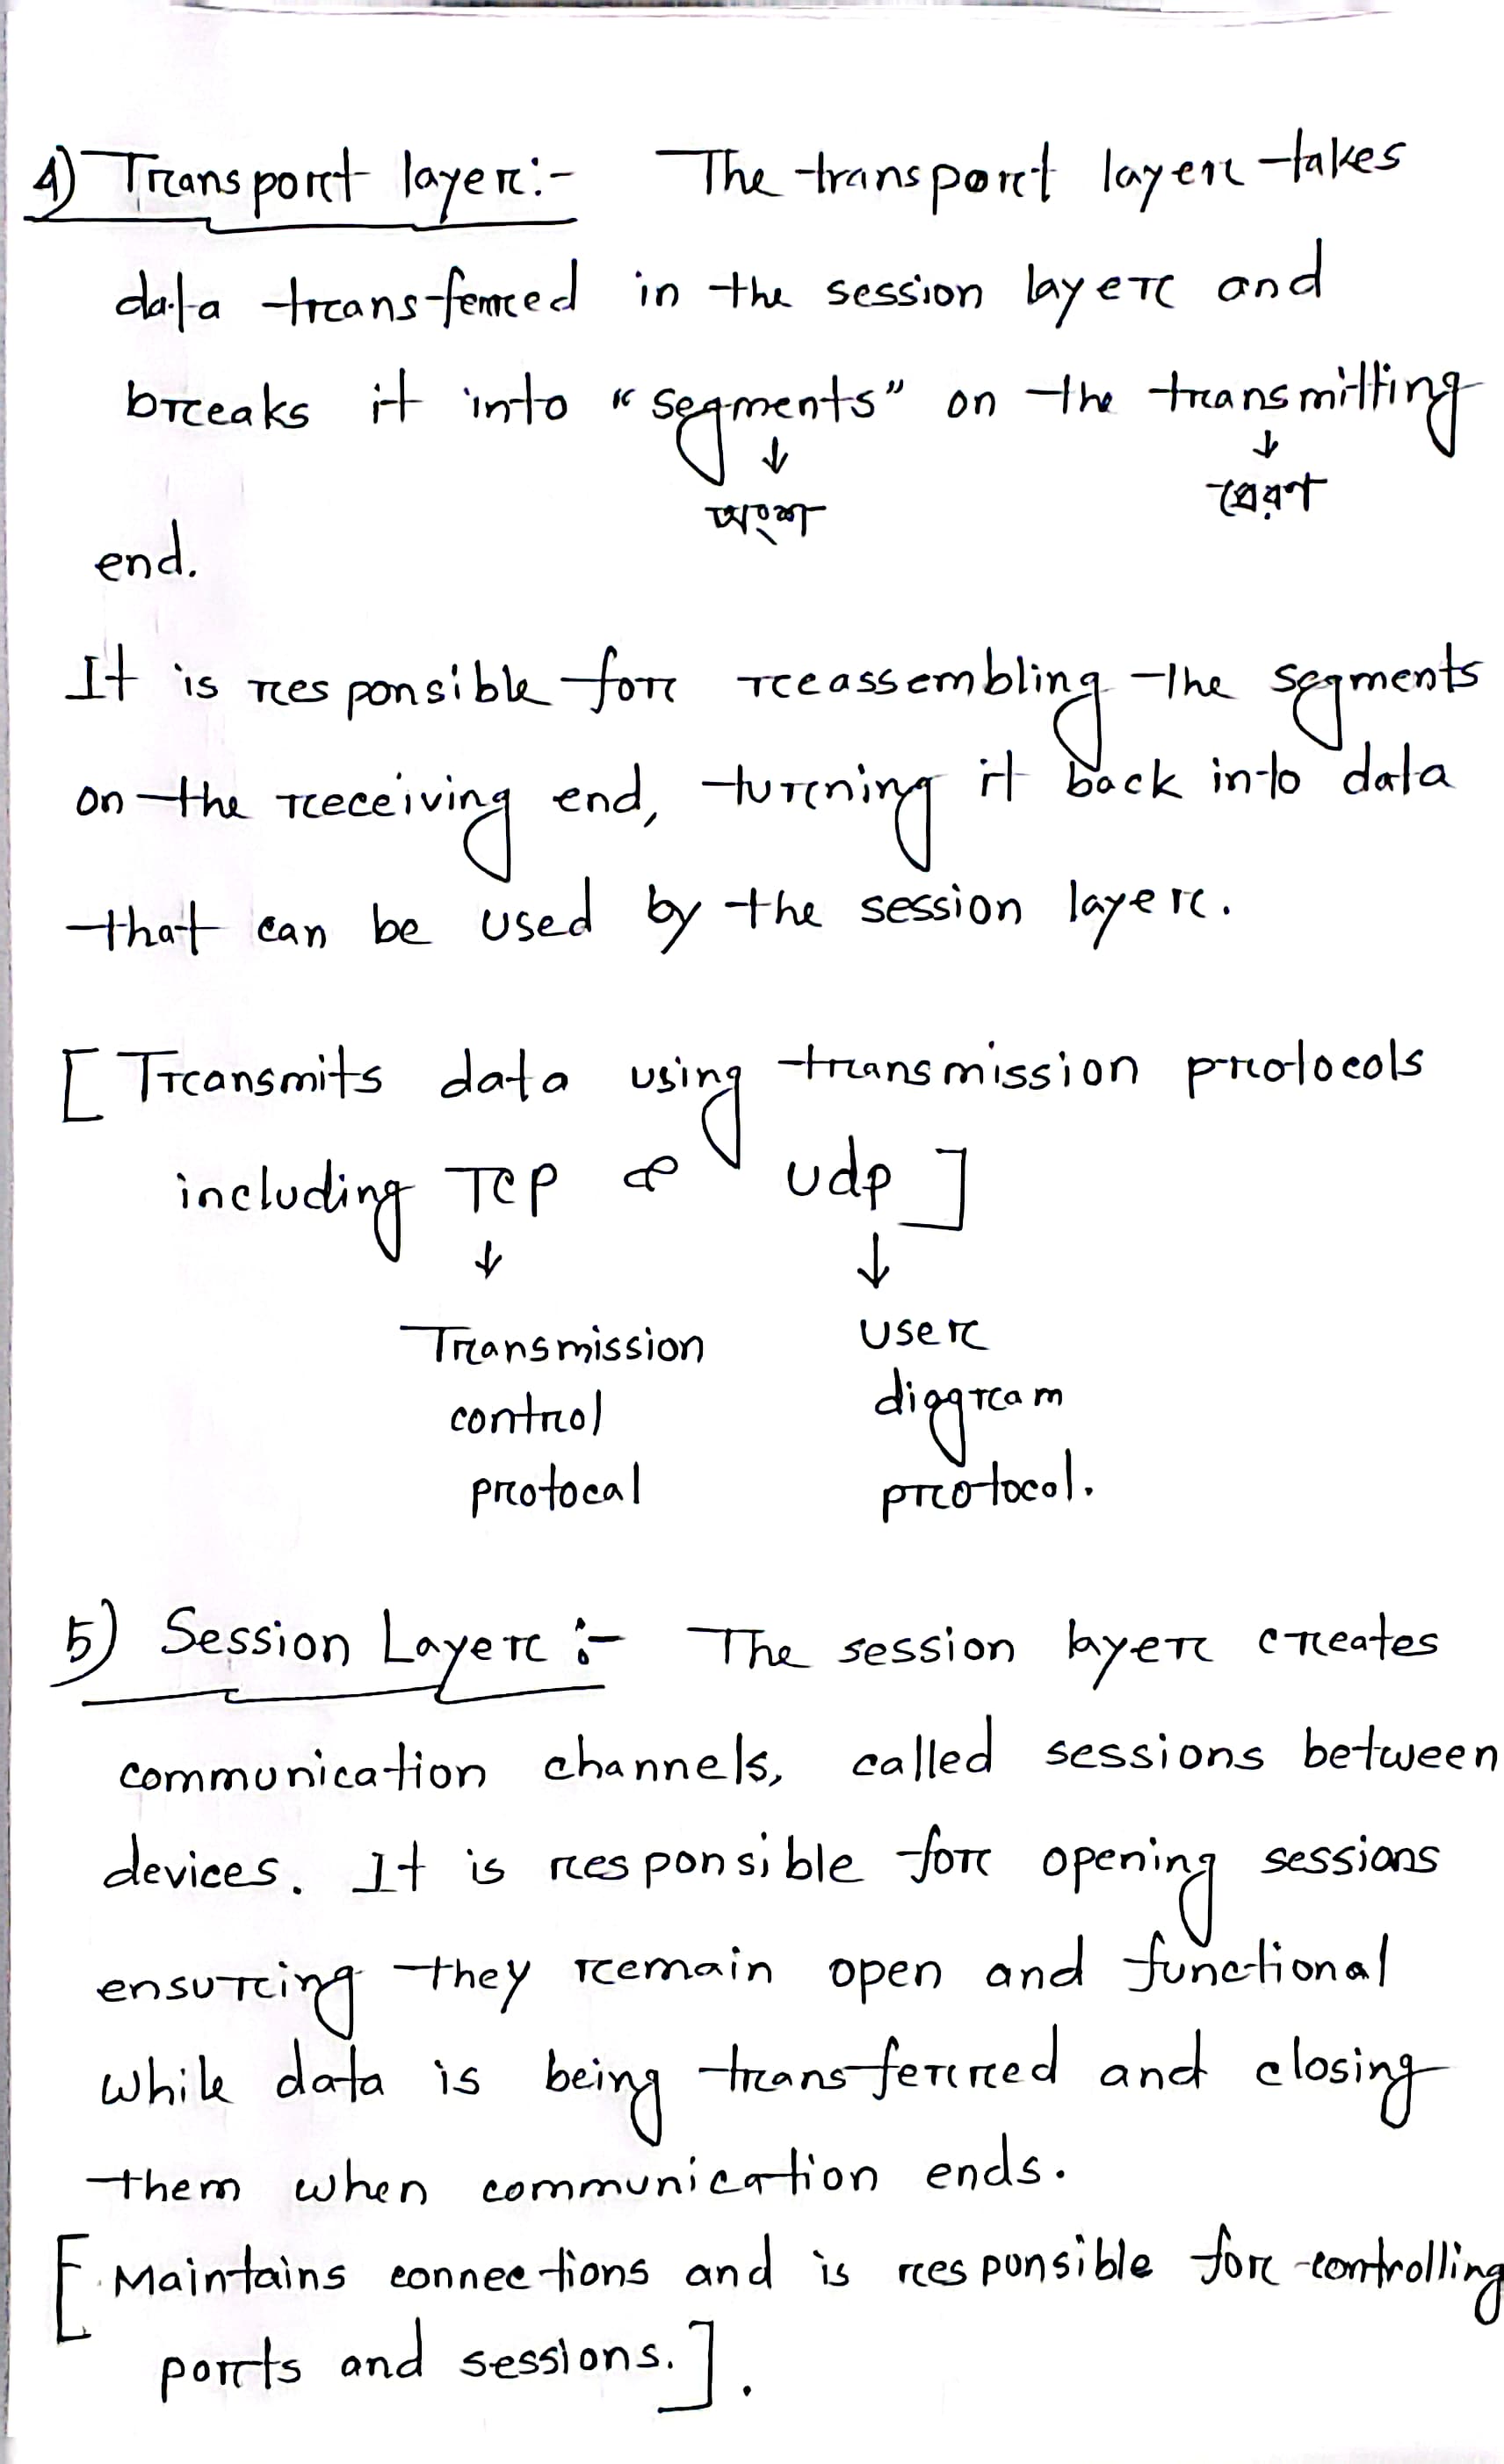 4) Transport layer:- The transport layer takes
data transferred in the session layer and
breaks it into "segments" on the transmitting
↓ ↓
অংশ প্রেরণ
end.
It is responsible for reassembling the segments
on the receiving end, turning it back into data
that can be used by the session layer.
[ Transmits data using transmission protocols
including TCP & udp ]
↓ ↓
Transmission user
control diagram
protocal protocol.
5) Session Layer :- The session layer creates
communication channels, called sessions between
devices. It is responsible for opening sessions
ensuring they remain open and functional
while data is being transferred and closing
them when communication ends.
[ Maintains connections and is responsible for controlling
ports and sessions. ] .